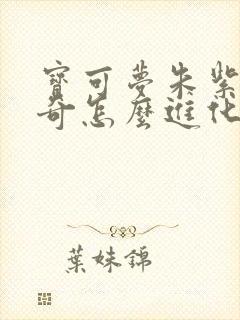 寶可夢朱紫
奇怎麼進化
葉妹錦